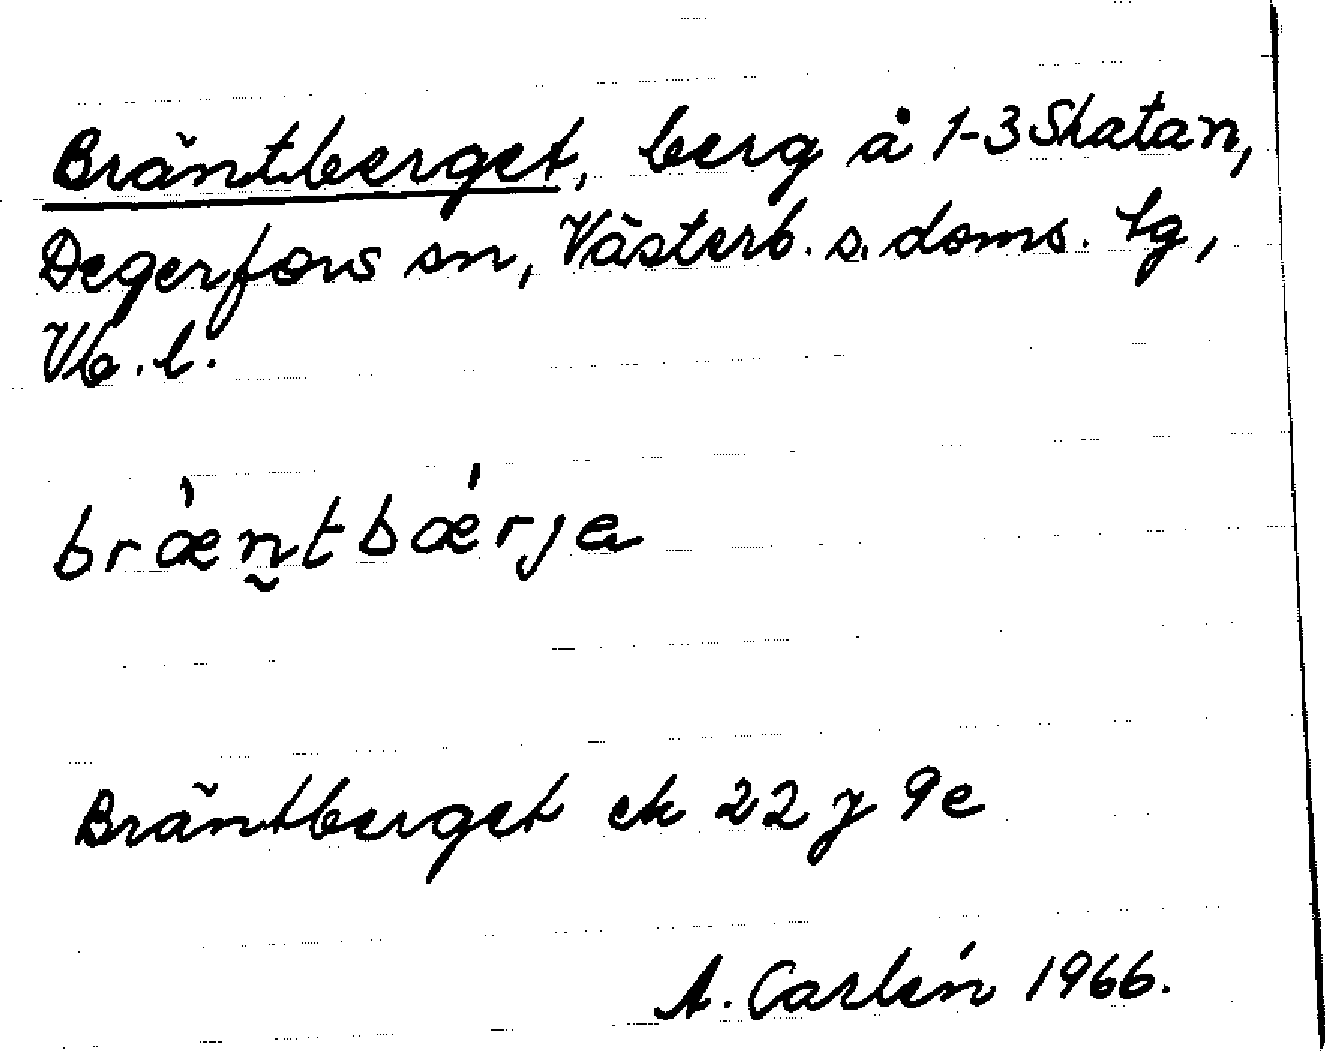 Bräntberget, berg å 1-3 Skatan,
Degerfors sn, Västerb. s. doms. lg,
Vb. l.
bræ̀n̰tbǽrjɐ
Bräntberget ek 22 J 9e
A. Carlén 1966.